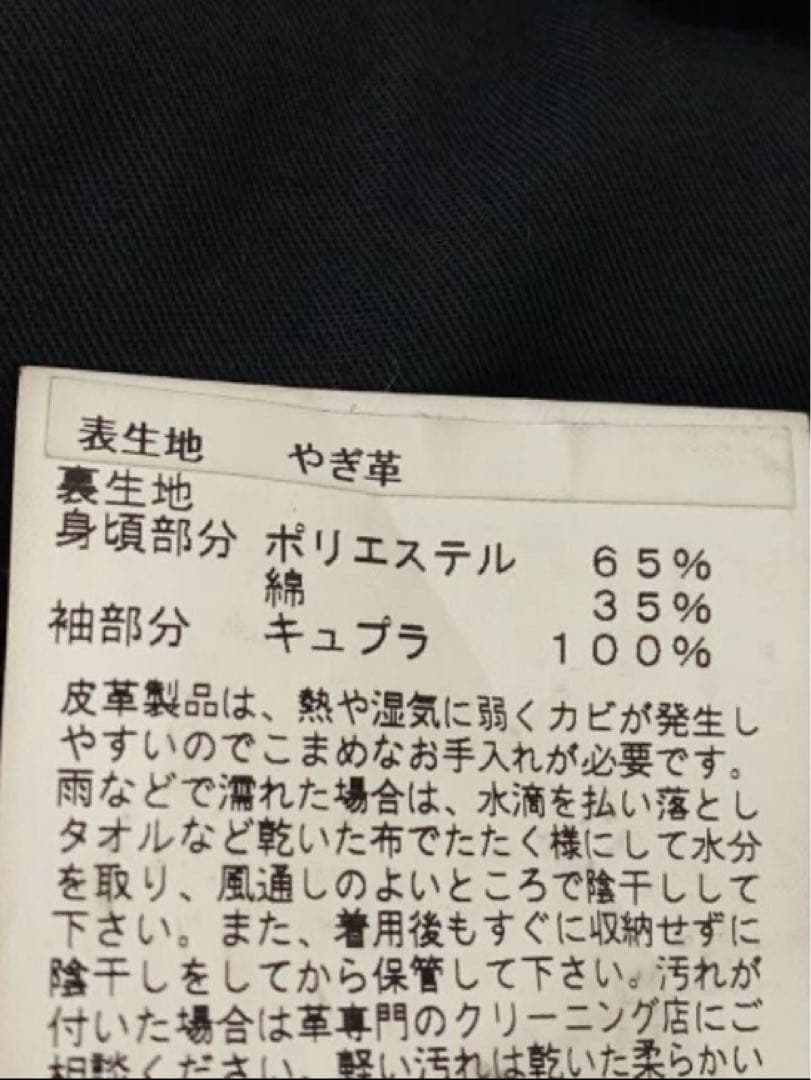 表生地 やぎ革
裏生地
身頃部分 ポリエステル 65%
綿 35%
袖部分 キュプラ 100%
皮革製品は、熱や湿気に弱くカビが発生し
やすいのでこまめなお手入れが必要です。
雨などで濡れた場合は、水滴を払い落とし
タオルなど乾いた布でたたく様にして水分
を取り、風通しのよいところで陰干しして
下さい。また、着用後もすぐに収納せずに
陰干しをしてから保管して下さい。汚れが
付いた場合は革専門のクリーニング店にご
相談ください。軽い汚れは乾いた柔らかい